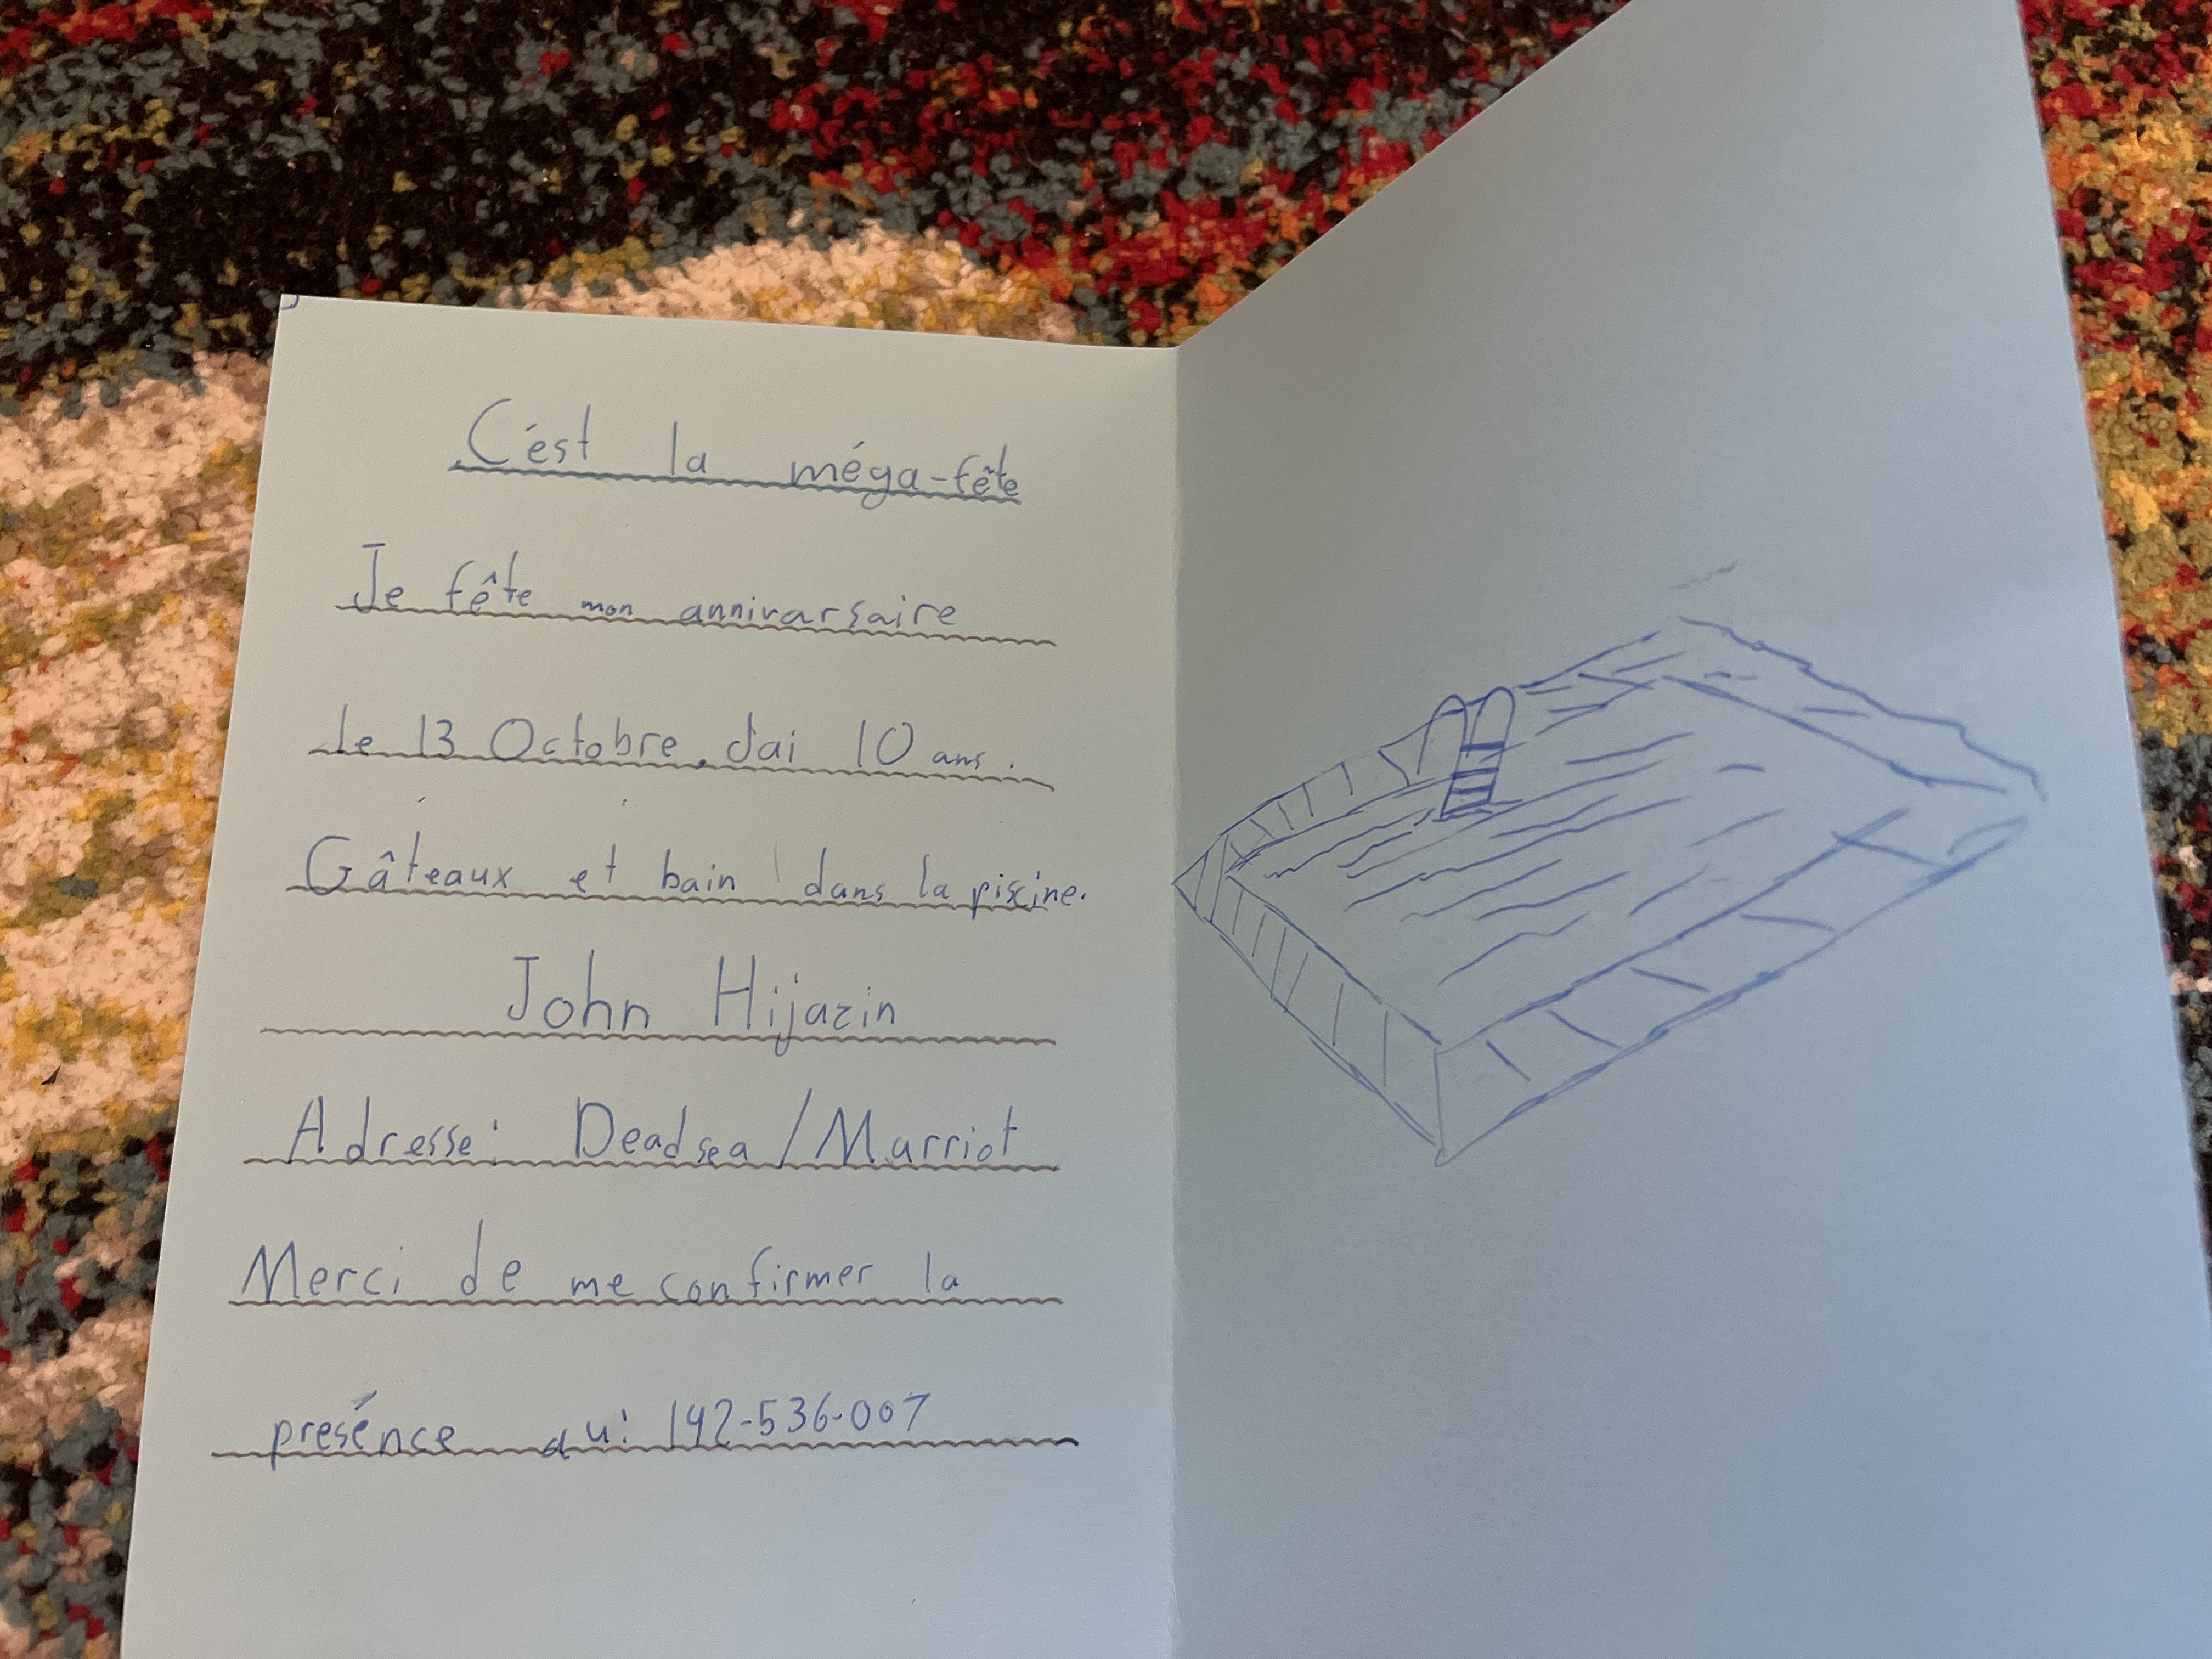 C'est la méga-fête
Je fête mon annivarsaire
le 13 Octobre. J'ai 10 ans.
Gâteaux et bain dans la piscine.
John Hijazin
Adresse: Deadsea/Marriot
Merci de me confirmer la
presénce au: 142-536-007